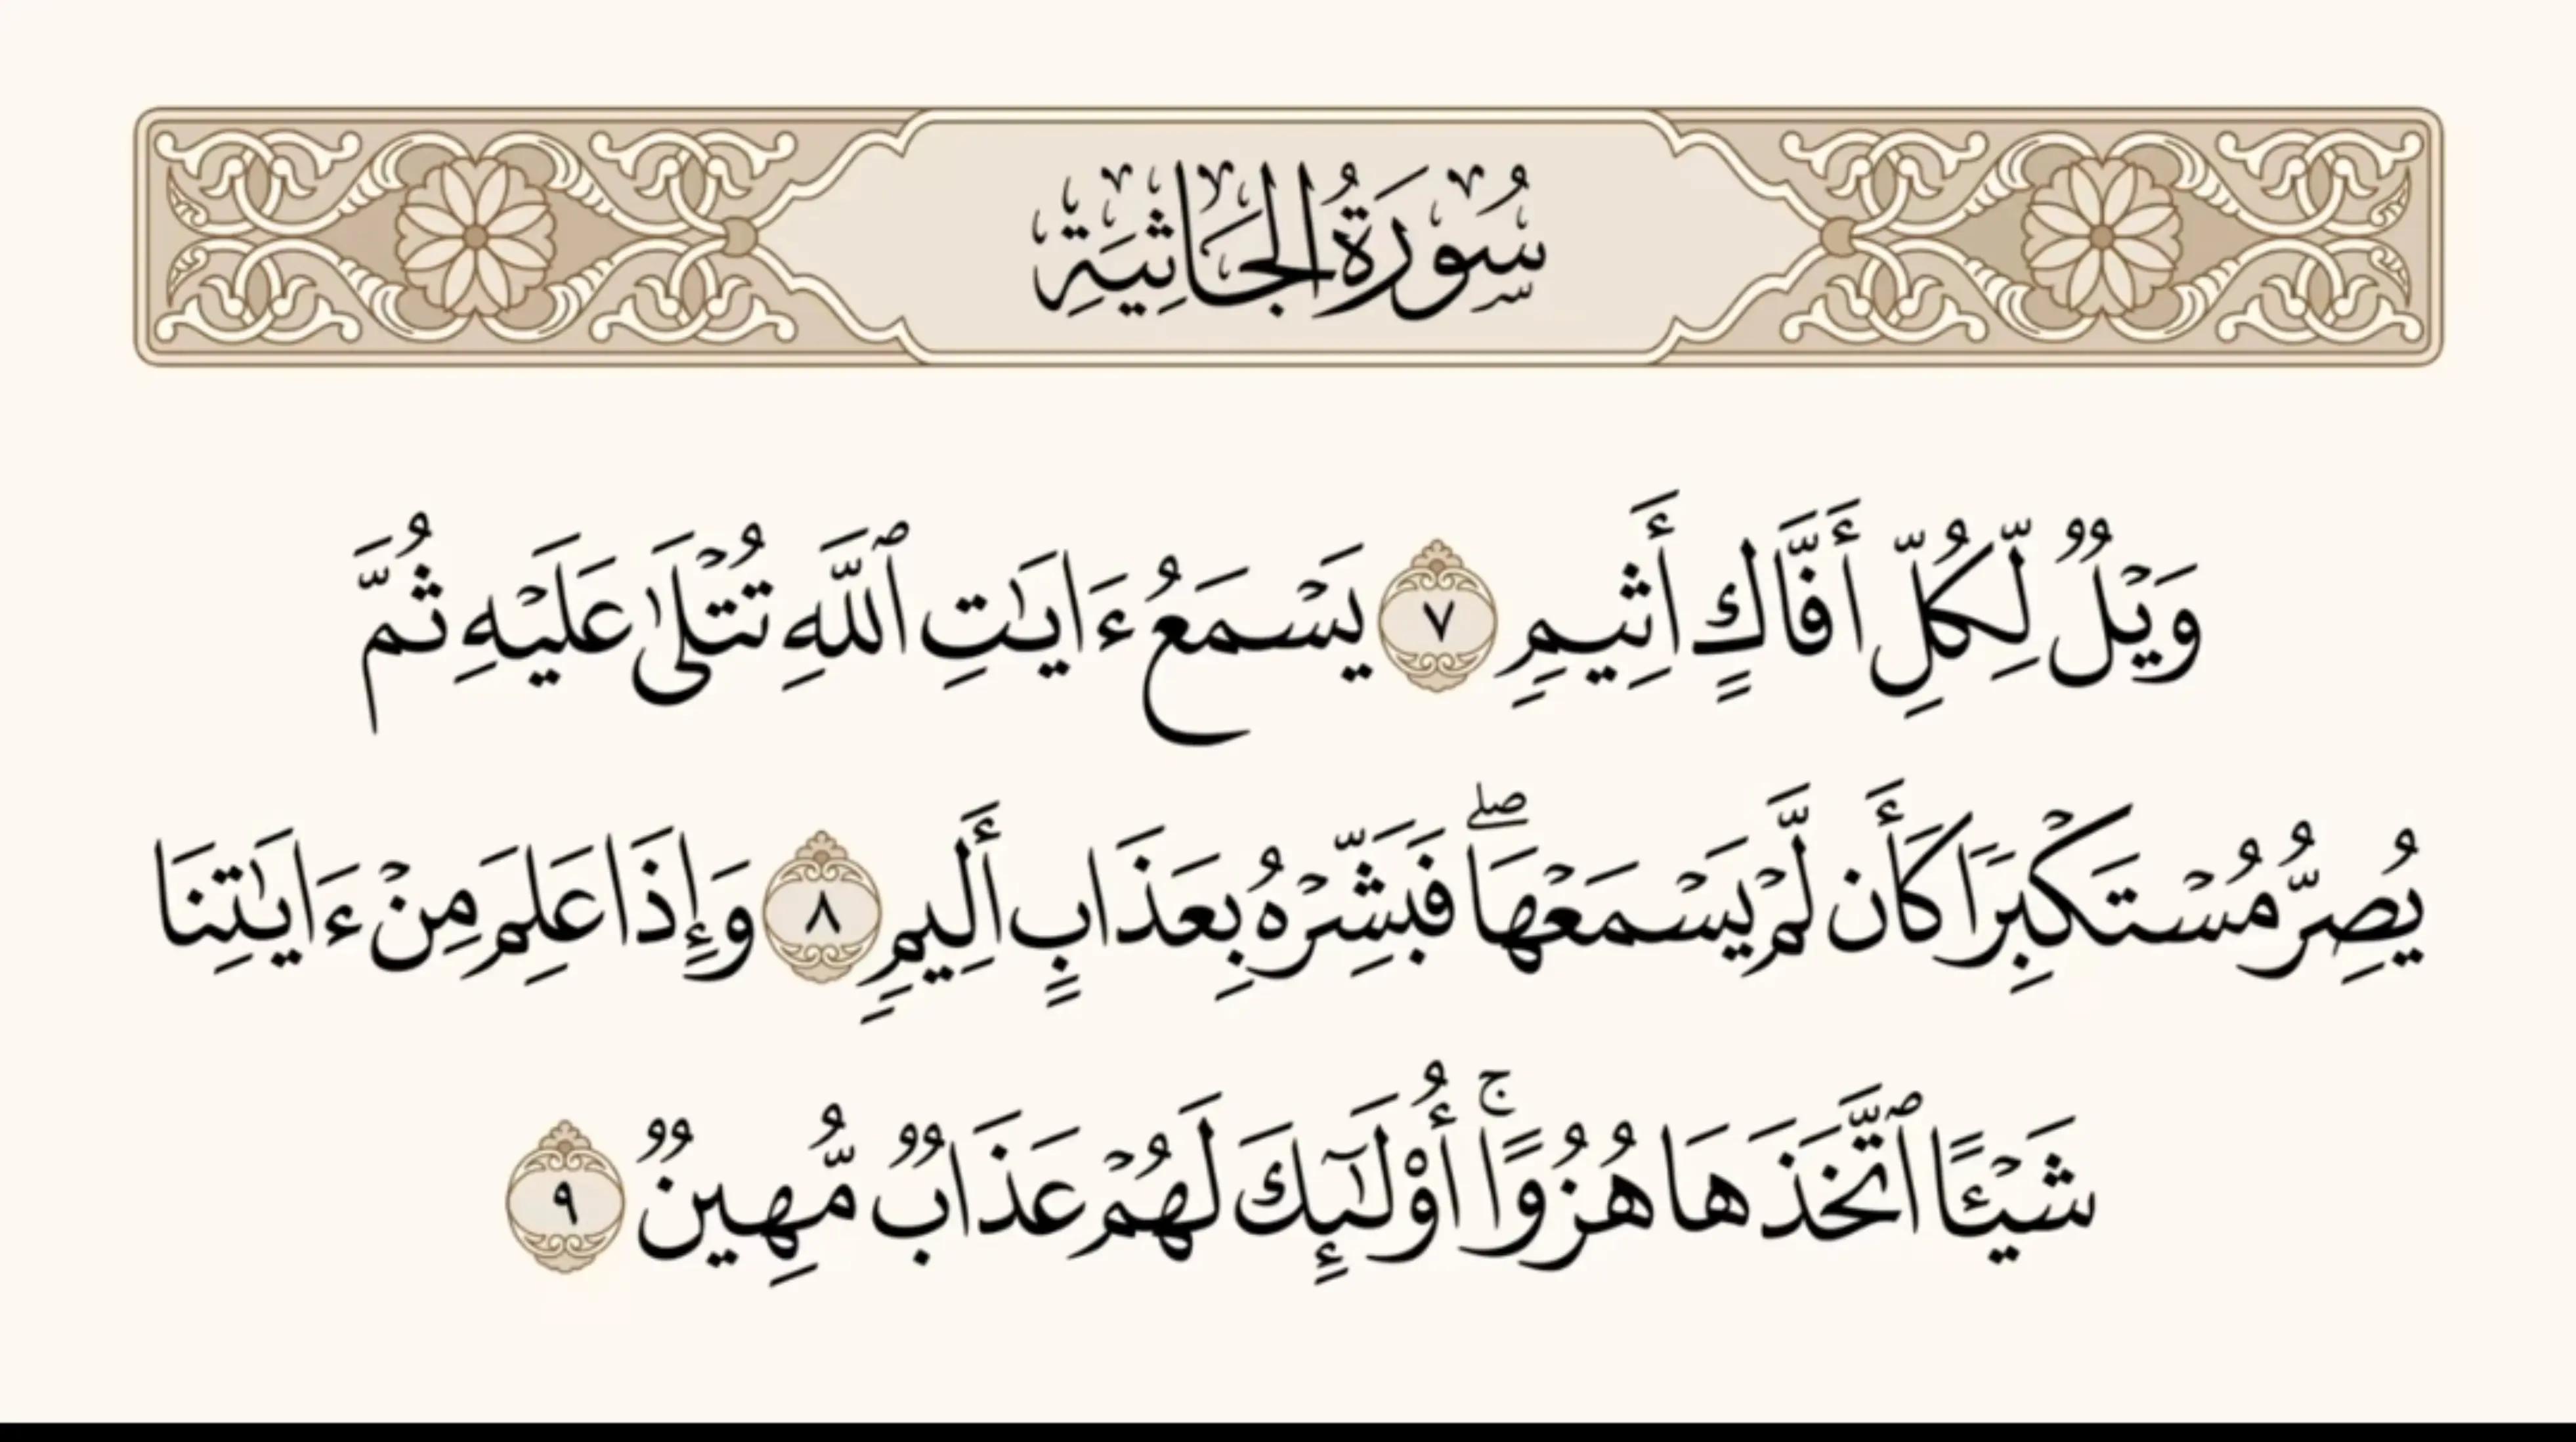 سُورَةُ الجَاثِيَةِ
وَيْلٌ لِّكُلِّ أَفَّاكٍ أَثِيمٍ ٧ يَسْمَعُ ءَايَٰتِ ٱللَّهِ تُتْلَىٰ عَلَيْهِ ثُمَّ
يُصِرُّ مُسْتَكْبِرًا كَأَن لَّمْ يَسْمَعْهَا ۖ فَبَشِّرْهُ بِعَذَابٍ أَلِيمٍ ٨ وَإِذَا عَلِمَ مِنْ ءَايَٰتِنَا
شَيْـًٔا ٱتَّخَذَهَا هُزُوًا ۚ أُو۟لَٰٓئِكَ لَهُمْ عَذَابٌ مُّهِينٌ ٩